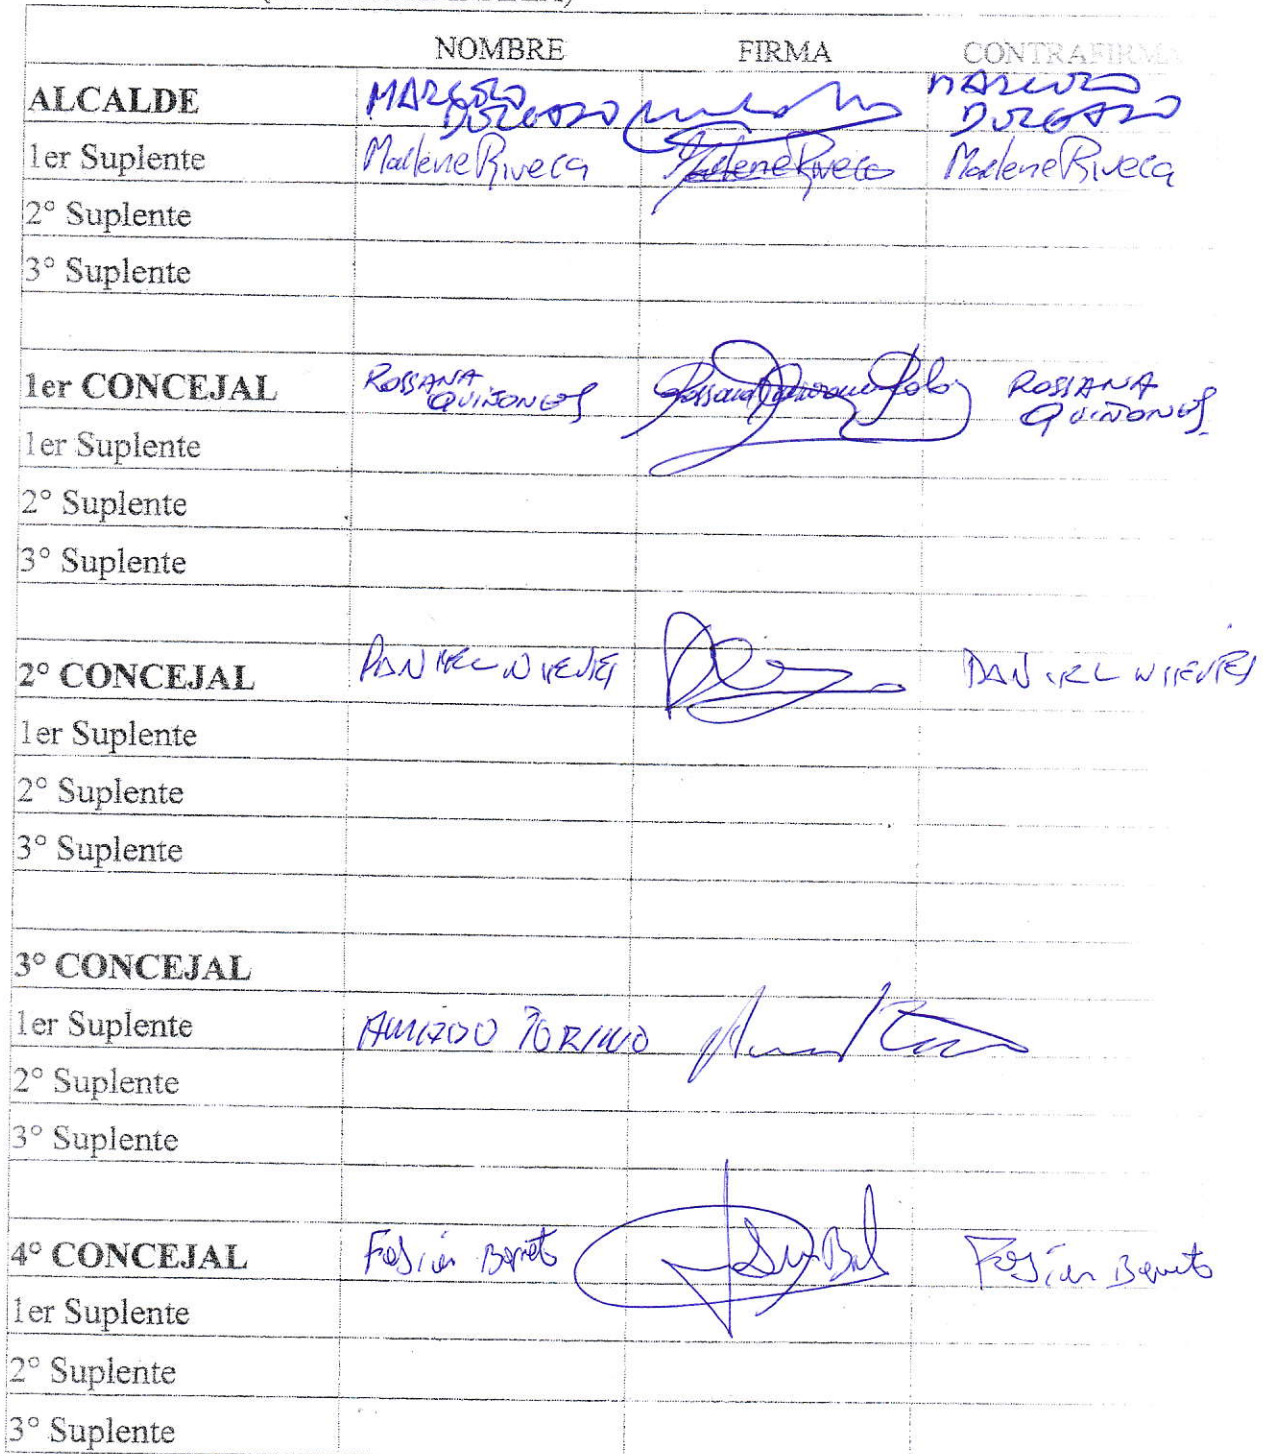 NOMBRE FIRMA CONTRAFIRMA
ALCALDE
1er Suplente Marlene Rivera Marlene Rivera Marlene Rivera
2° Suplente
3° Suplente
1er CONCEJAL ROSSANA QUIÑONES ROSSANA QUIÑONES
1er Suplente
2° Suplente
3° Suplente
2° CONCEJAL DANIEL NIEVES DANIEL NIEVES
1er Suplente
2° Suplente
3° Suplente
3° CONCEJAL
1er Suplente TORINO
2° Suplente
3° Suplente
4° CONCEJAL Fabián Fabián
1er Suplente
2° Suplente
3° Suplente